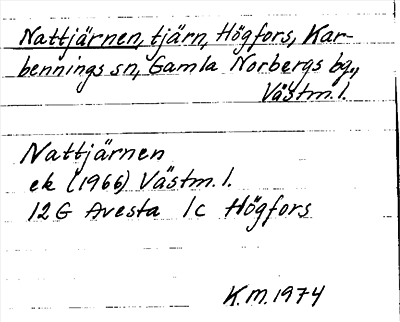 Nattjärnen, tjärn, Högfors, Kar-
bennings sn, Gamla Norbergs bg,
Västm. l.
Nattjärnen
ek (1966) Västm. l.
12 G Avesta 1c Högfors
K.M. 1974